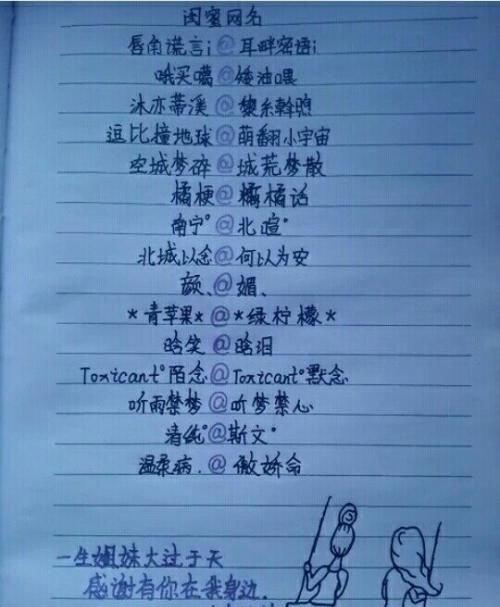 闺蜜网名
唇角谎言i@耳畔密语i
哦买噶@矮油喂
沐亦蒂溪@黎糸斡煦
逗比撞地球@萌翻小宇宙
空城梦碎@城荒梦散
橘梗@橘话
南宁°@北暄°
北城以念@何以为安
颜、@媚、
*青苹果*@*绿柠檬*
晗笑@晗泪
Toxicant°陌念@Toxicant°默念
听雨禁梦@听梦禁心
清纯°@斯文°
温柔病.@傲娇命
一生姐妹大过于天
感谢有你在我身边.